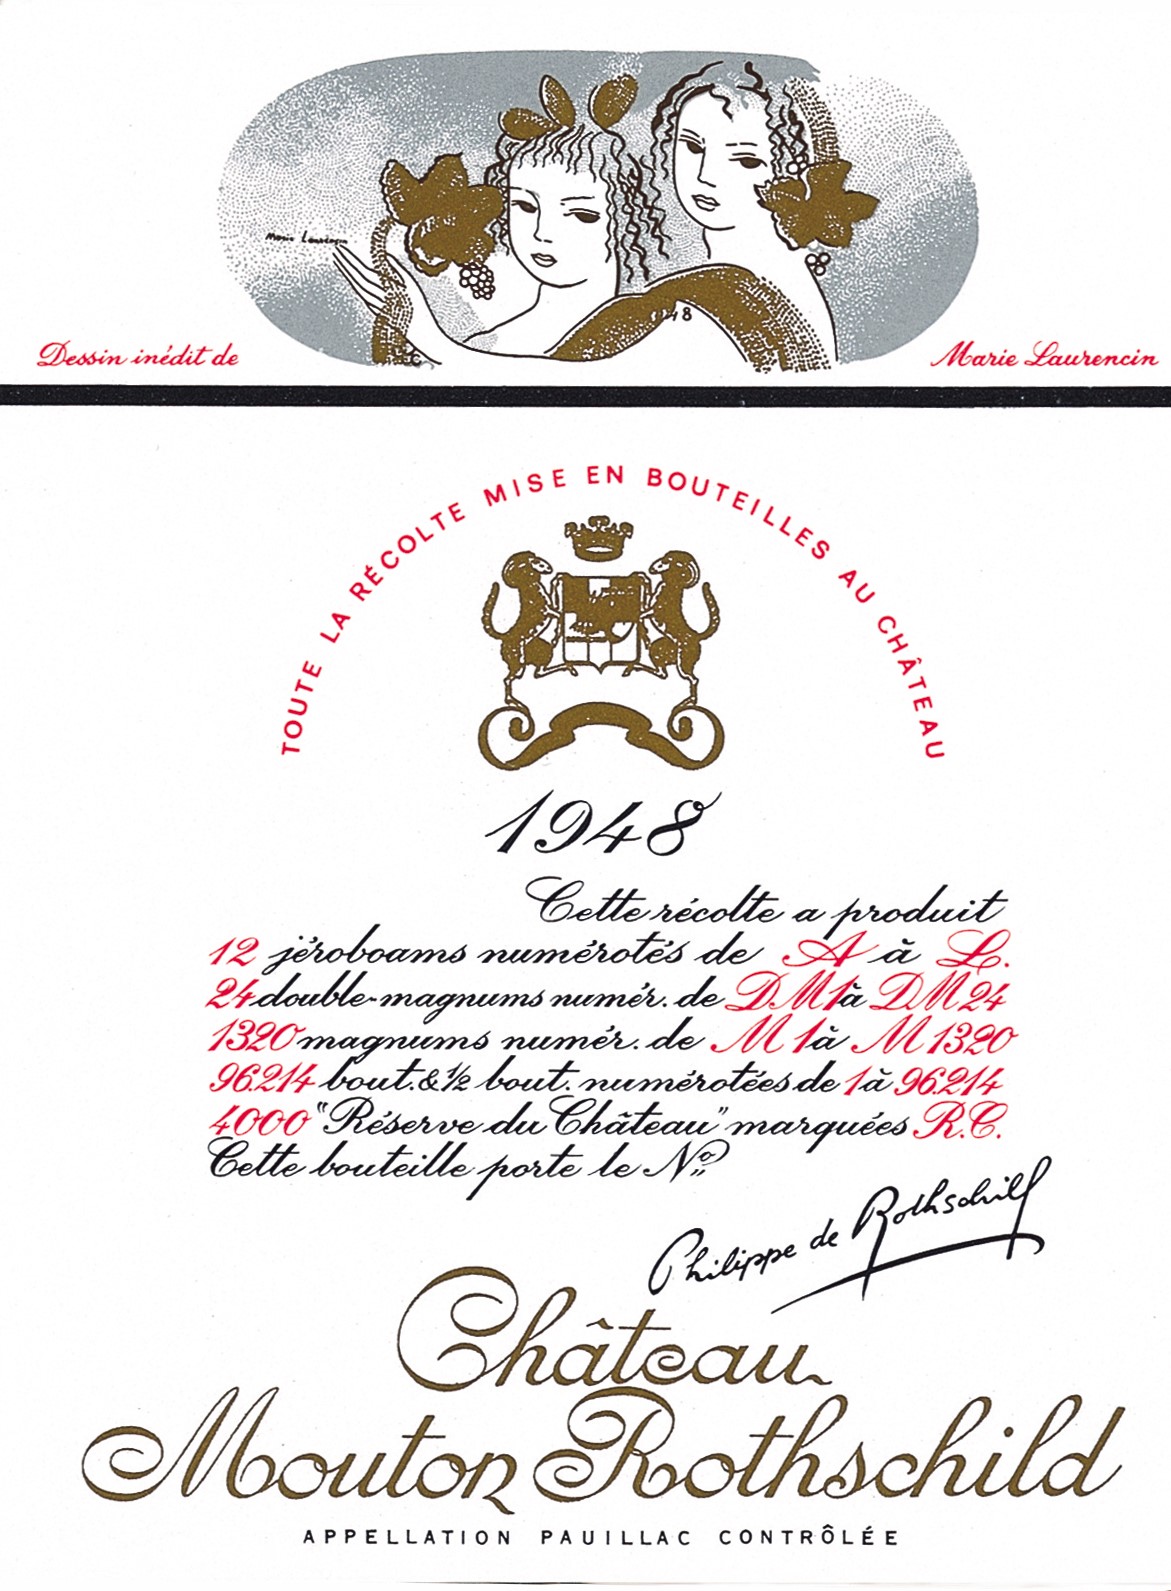 Marie Laurencin
1948
Dessin inédit de
Marie Laurencin
TOUTE LA RÉCOLTE MISE EN BOUTEILLES AU CHÂTEAU
1948
Cette récolte a produit
12 jéroboams numérotés de A à L.
24 double-magnums numér. de D.M1à D.M24
1320 magnums numér. de M1à M1320
96.214 bout.&½ bout. numérotées de 1à 96.214
4000 "Réserve du Château" marquées R.C.
Cette bouteille porte le Nº
Philippe de Rothschild
Château
Mouton Rothschild
APPELLATION PAUILLAC CONTRÔLÉE